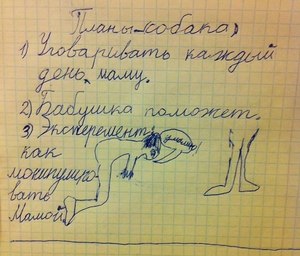 Планы-собака)
1) Уговаривать каждый
день маму.
2) Бабушка поможет.
3) Эксперемент:
как
монипулиро-
вать
Мамой